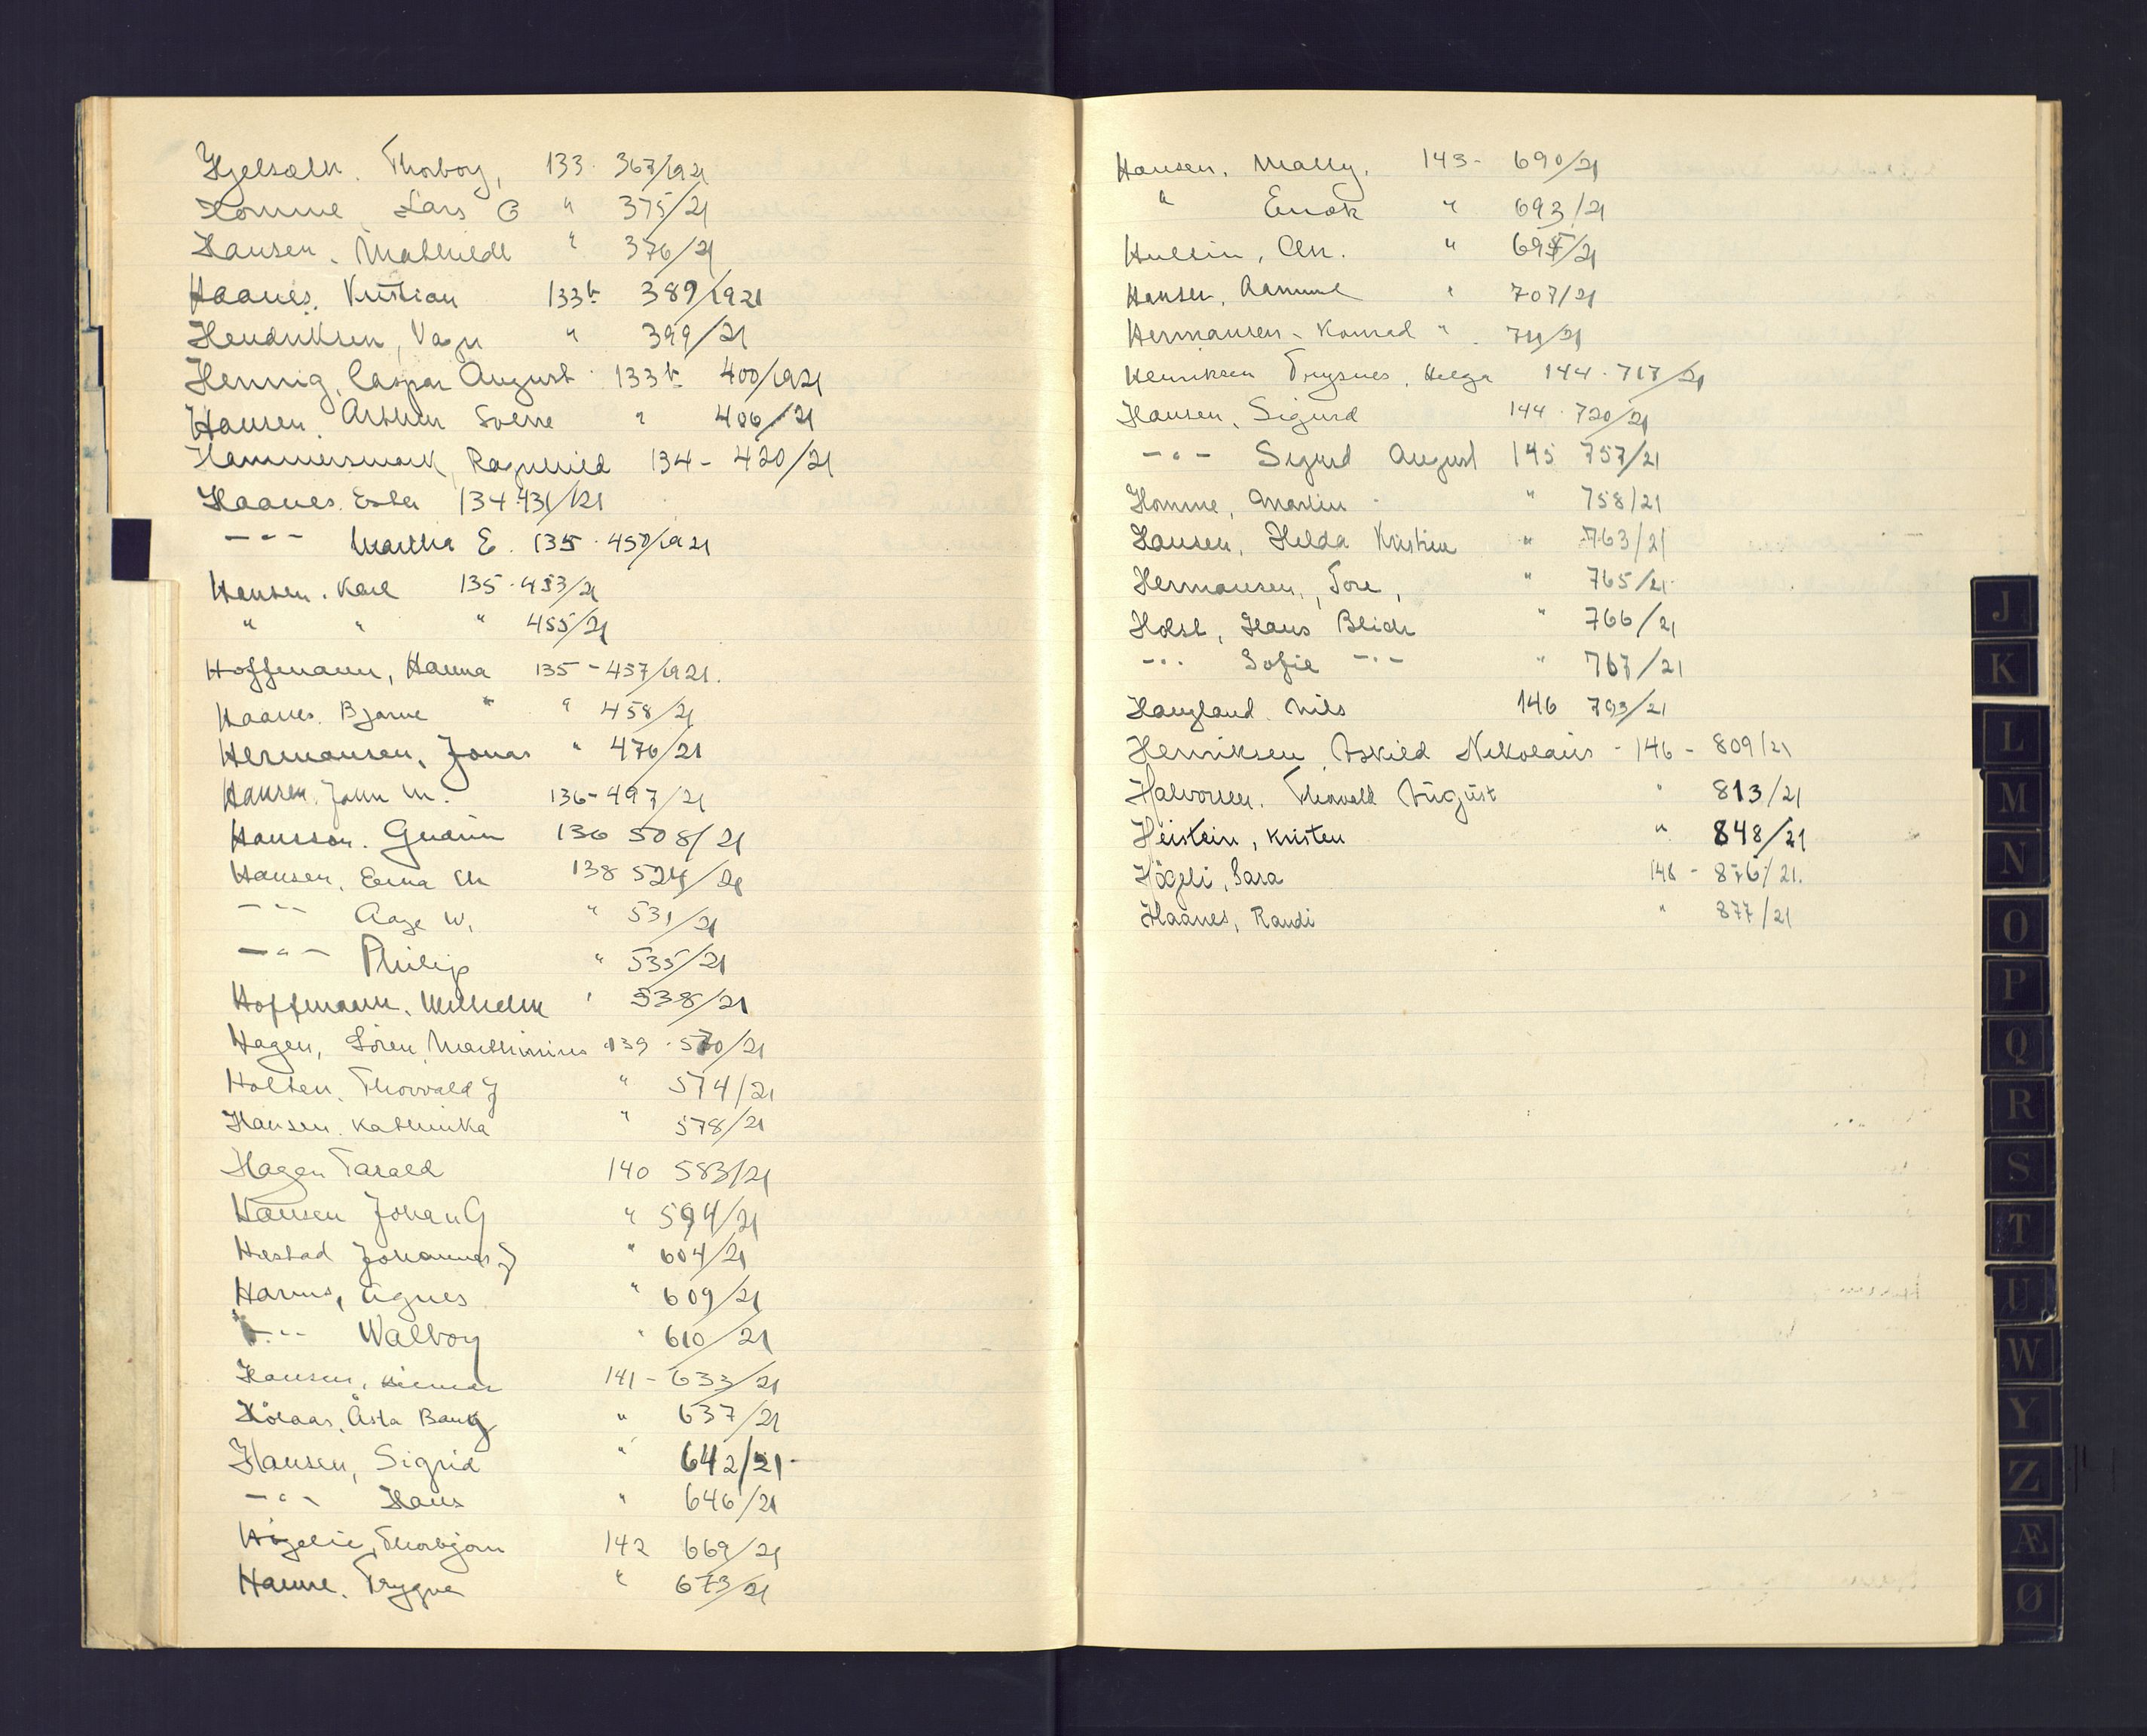 Hjelsæth. Thorborg, 133. 367/1921
Homme, Lars G " 375/21
Hansen. Mathilde " 376/21
Haanes. Kristian 133b 389/1921
Hendriksen, Vagn " 399/21
Hennig, Caspar August 133b 400/1921
Hansen. Arthur Sverre " 406/21
Hammersmark, Ragnhild 134 - 420/21
Haanes. Ester 134 431/121
- " - Martha E. 135 . 450/1921
Hansen. Karl 135 . 453/21
" " " 455/21
Hoffmann, Hanna 135 - 457/1921.
Haanes. Bjarne " " 458/21
Hermansen, Jonas " 476/21
Hansen. John M. 136 - 497/21
Hansson. Gudrun 136 508/21
Hansen, Erna M 138 524/21
- " - Aage W. " 531/21
- " - Philip " 535/21
Hoffmann. Wilhelm " 538/21
Hagen, Sören Marthinius 139 . 570/21
Holten. Thorvald J " 574/21
Hansen. Kathinka " 578/21
Hagen Tarald 140 583/21
Hansen Johan G " 594/21
Hestad Johannes J " 604/21
Hannes, Agnes " 609/21
- " - Walborg " 610/21
Hansen, 141 - 633/21
Hölaas, Åsta Bang " 637/21
Hansen, Sigrid " 642/21 -
- " - Hans " 646/21
Thorbjørn 142 669/21
Hanne. Trygve " 673/21
Hansen. Mally. 143 - 690/21
" Enok " 693/21
Hullin, Chr. " 695/21
Hansen, " 707/21
Hermansen - Konrad " 711/21
Henriksen Trysnes, Helga 144 . 717/21
Hansen, Sigurd 144 . 720/21
- " - Sigurd August 145 757/21
Homme, Martin - " 758/21
Hansen, Helda Kristine " 763/21
Hermansen, Tore, " 765/21
Holst, Hans Blich " 766/21
- " - Sofie - " - " 767/21
Haugland. Nils 146 793/21
Henriksen, Askild Nikolaius - 146 - 809/21
Halvorsen. Thorvald August " 813/21
Heistein, Kristen " 848/21
Högeli, Sara 148 - 876/21.
Haanes, Randi " 877/21
J
K
L
M
N
O
P
Q
R
S
T
U
W
Y
Z
Æ
Ø